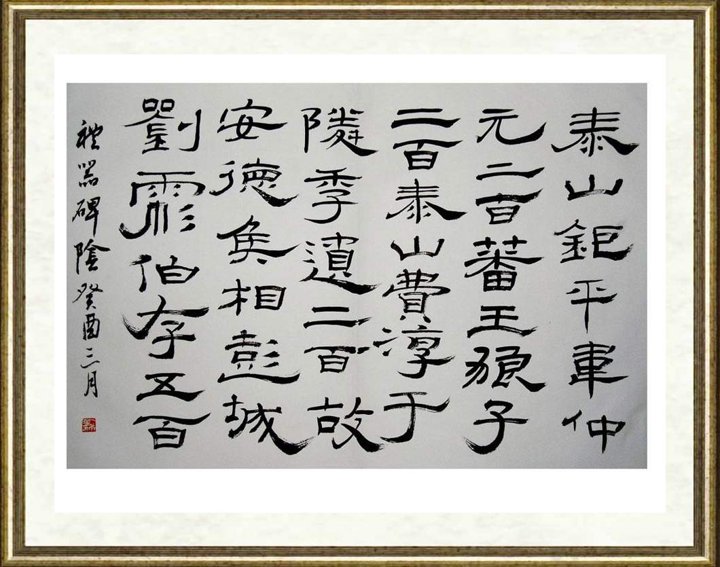 泰山鉅平韋仲
元二百蕃王狼子
二百泰山費淳于
隣季遺二百故
安德侯相彭城
劉彪伯存五百
禮器碑陰癸酉三月